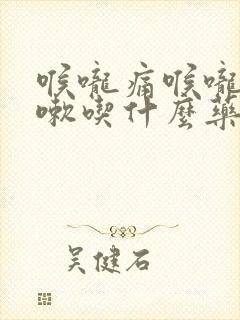 喉嚨痛喉嚨
嗽喫什麼藥
吴健石